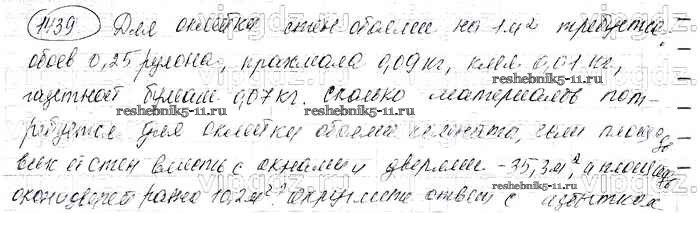 1439) Для оклейки стен обоями на 1 м² требуется
обоев 0,25 рулона, крахмала 0,09 кг, клея 0,01 кг,
газетной бумаги 0,07 кг. Сколько материалов пот-
ребуется для оклейки обоями комнаты, чьи площадь
всех стен вместе с окнами и дверями - 35,3 м², а площадь
окон и дверей равна 10,2 м²? Округлите ответ с избытком
reshebnik5-11.ru
reshebnik5-11.ru
reshebnik5-11.ru
vipgdz.com